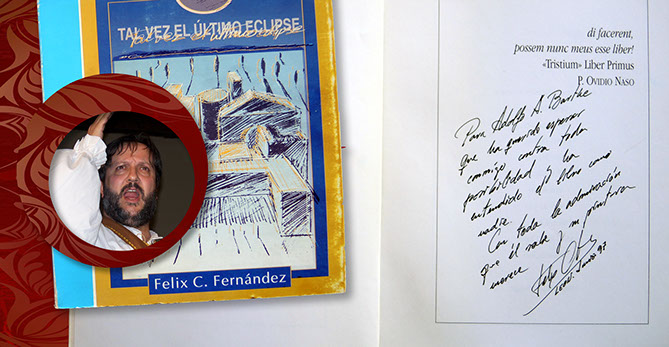 TAL VEZ EL ÚLTIMO ECLIPSE
Felix C. Fernández
di facerent,
possem nunc meus esse liber!
«Tristium» Liber Primus
P. OVIDIO NASO
Para Adolfo A. Barthe
que ha querido esperar
conmigo contra toda
posibilidad y ha
entendido el libro como
nadie
Con toda la admiración
que él vale y mi pintura
merece